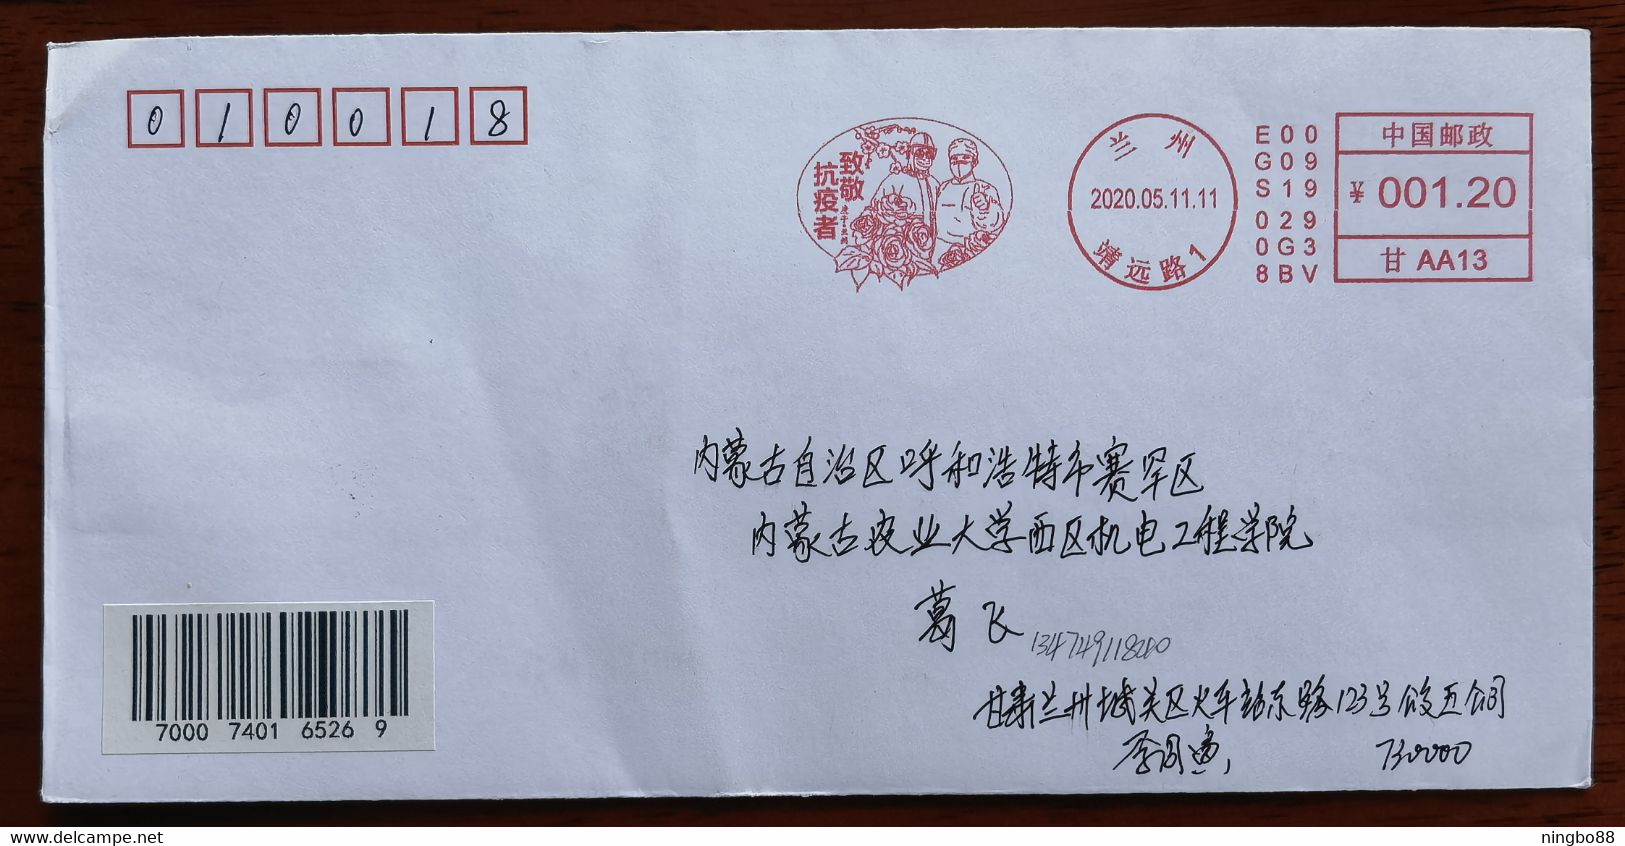 010018
致敬
抗疫者
兰州
2020.05.11.11
靖远路1
E00
G09
S19
029
0G3
8BV
中国邮政
¥ 001.20
甘 AA13
内蒙古自治区呼和浩特市赛罕区
内蒙古农业大学西区机电工程学院
葛飞
甘肃兰州城关区火车站东路123号公交五公司
730000
7000 7401 6526 9
www.delcampe.net
ningbo88